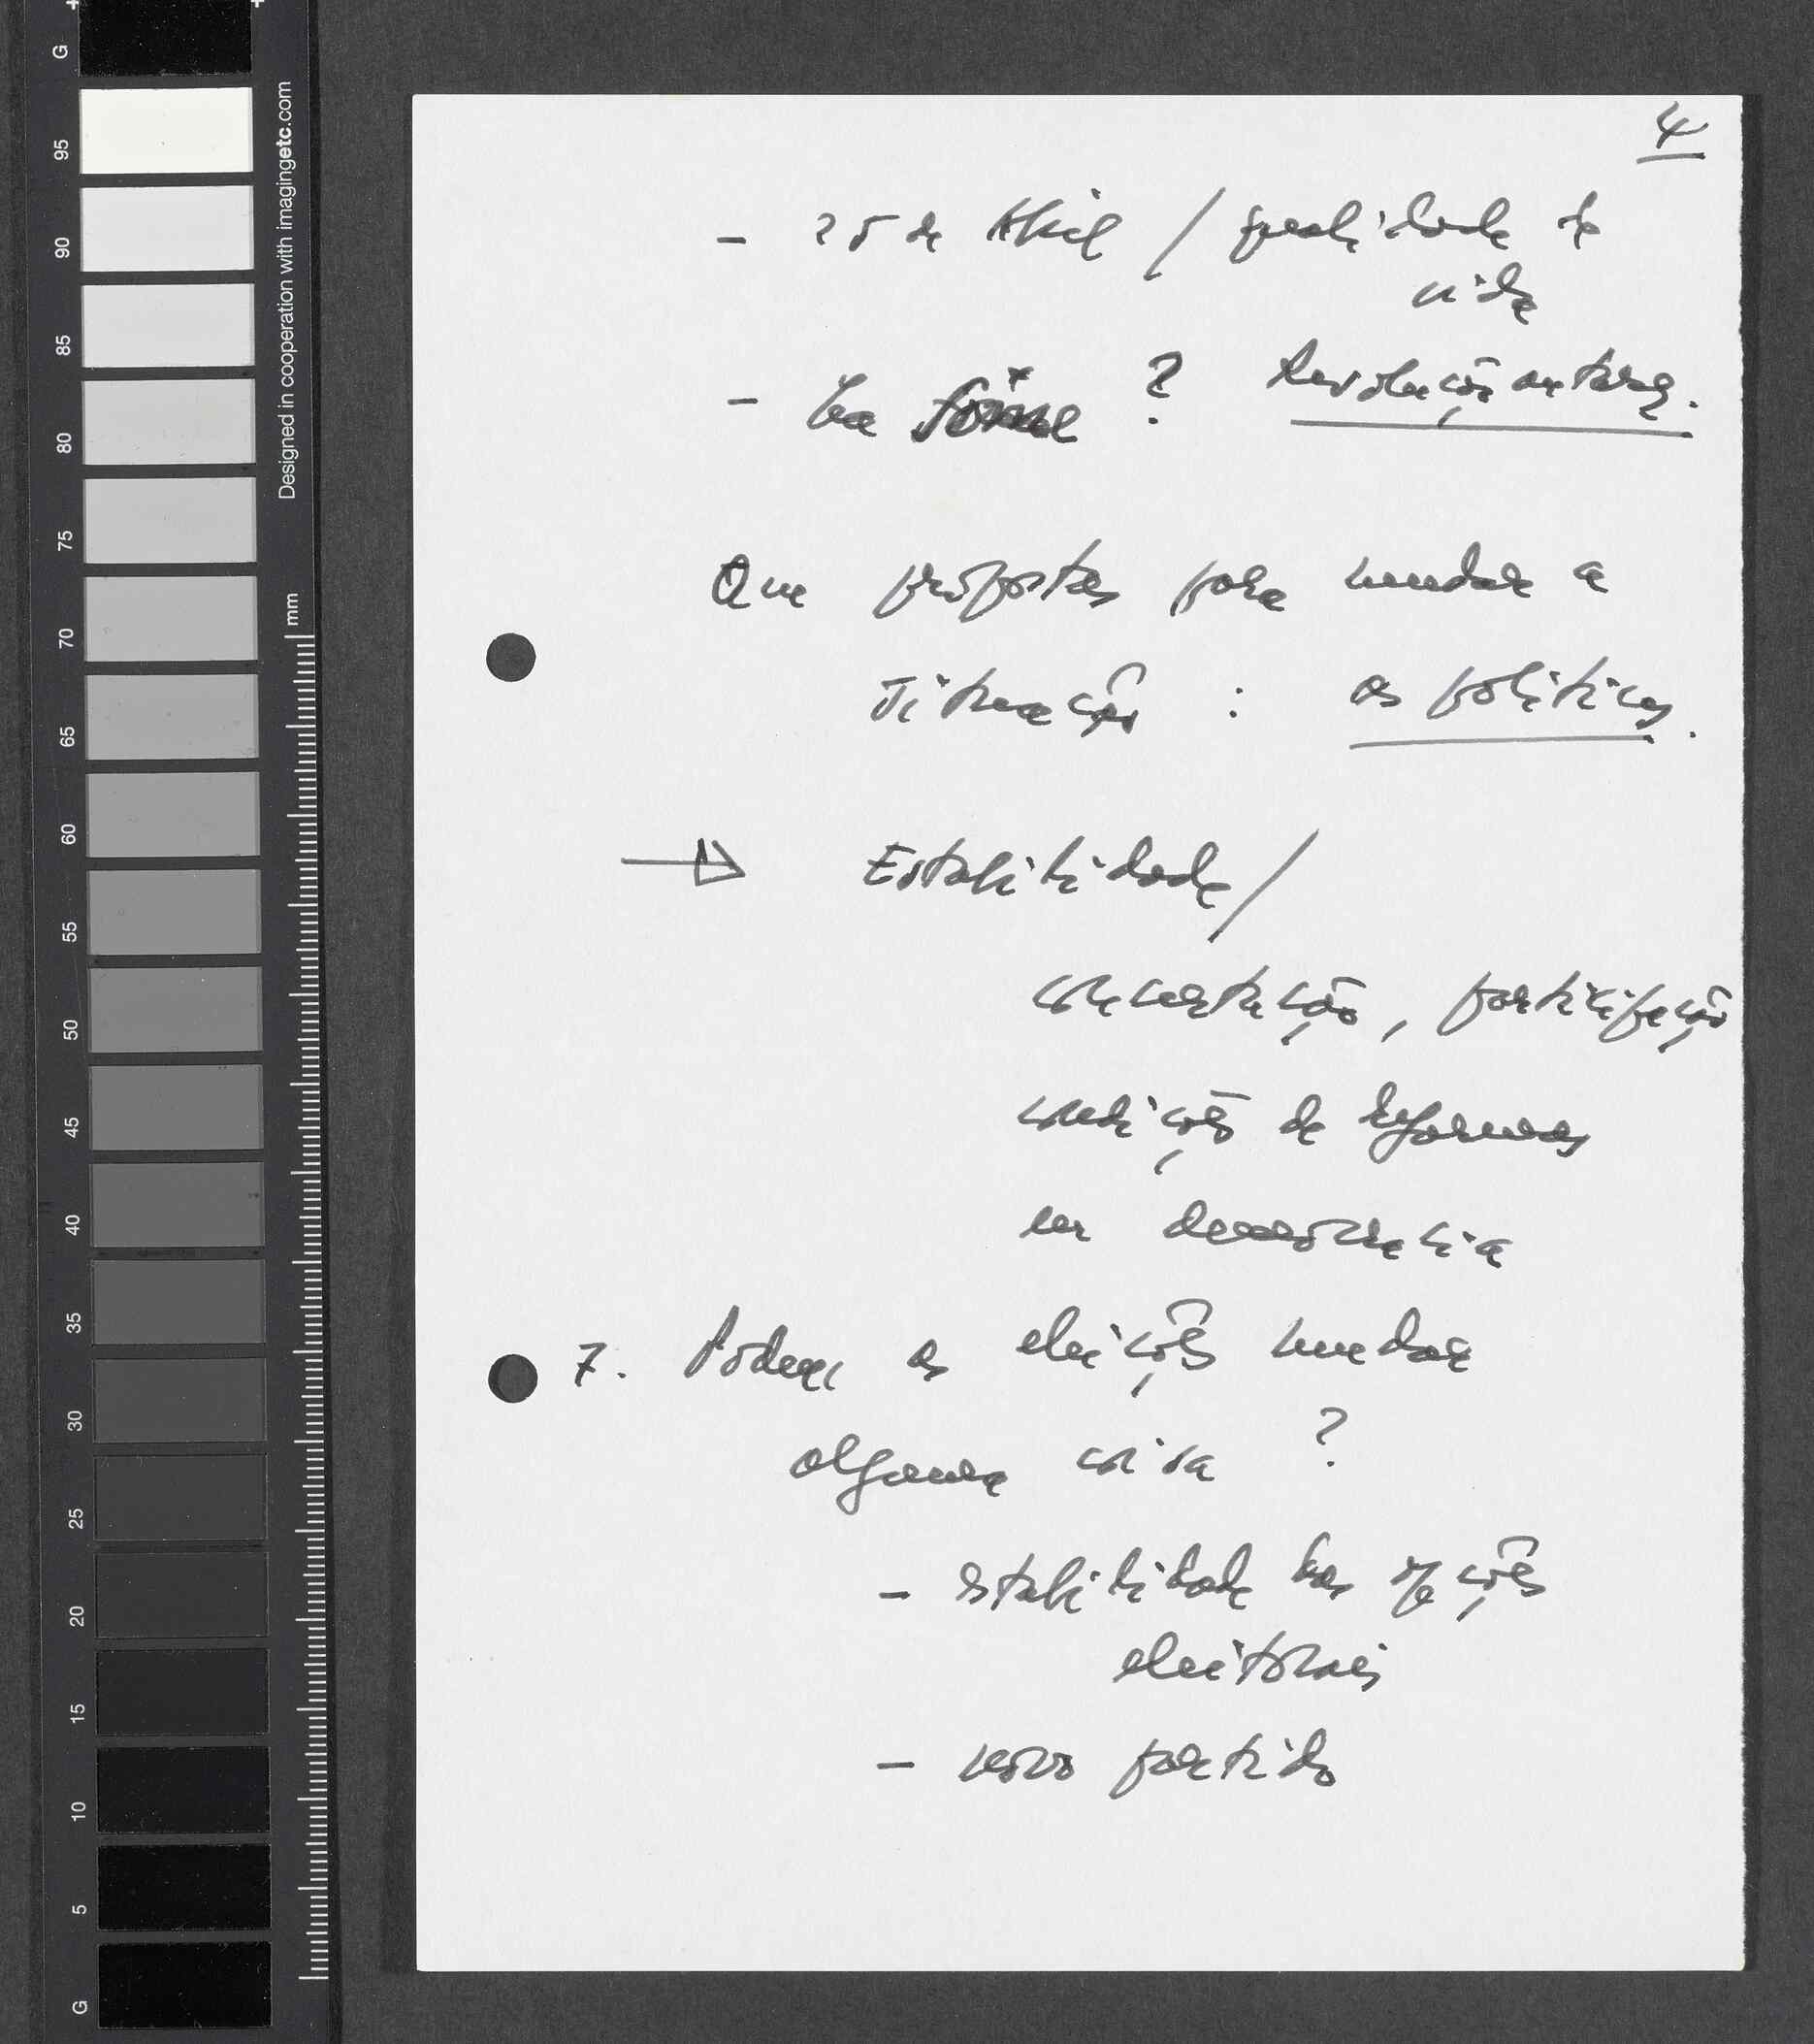 4
- 25 de Abril / qualidade de
vida
- ? Revolução
Que propostas para mudar a
situação : as políticas.
→ Estabilidade /
concertação, participação
condições de reformas
em democracia
7. Podem as eleições mudar
alguma coisa ?
- estabilidade nas opções
eleitorais
- novo partido
G
95
90
85
80
75
70
65
60
55
50
45
40
35
30
25
20
15
10
5
G
Designed in cooperation with imagingetc.com
mm